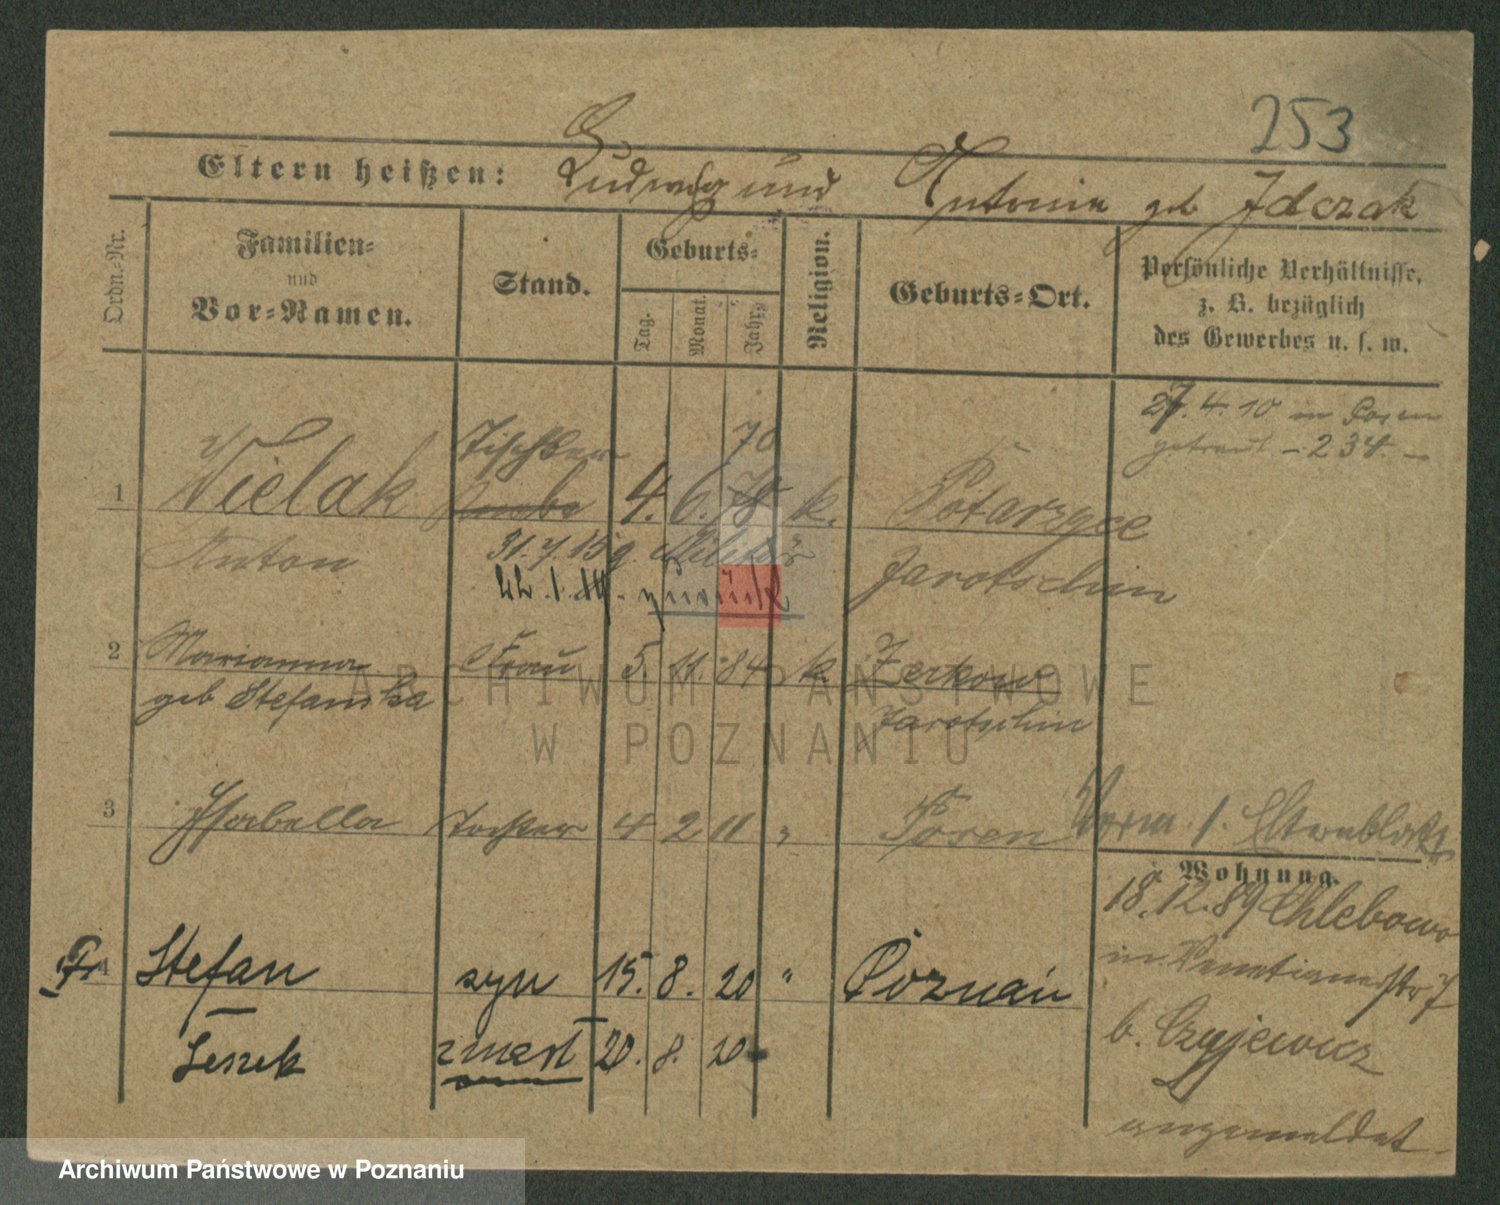 253
Eltern heißen: Ludwig und Antonie geb Idczak
Ordn.-Nr.
Familien-
und
Vor-Namen.
Stand.
Geburts-
Tag.
Monat.
Jahr.
Religion.
Geburts-Ort.
Persönliche Verhältnisse,
z. B. bezüglich
des Gewerbes u. s. w.
27. 4. 10 in Posen
getraut - 234. -
Tischler 70
1 Wielak 4. 6. 78 k. Potarzyce
Anton 31. 7. 15 z. Militär Jarotschin
22. 1. 19. zurück
2 Marianna Frau 5. 11. 84 k. Zerkow
geb Stefanska Jarotschin
3 Isabella Tochter 4 2 11 " Posen
Verm. 1. Elternblatt
Wohnung.
18. 12. 89 Chlebowo
in Venetianerstr 7
b. Czajewicz
angemeldet.
Fr 4 Stefan syn 15. 8. 20 " Poznań
Leszek zmarł 20. 8. 20
ARCHIWUM PAŃSTWOWE
W POZNANIU
Archiwum Państwowe w Poznaniu